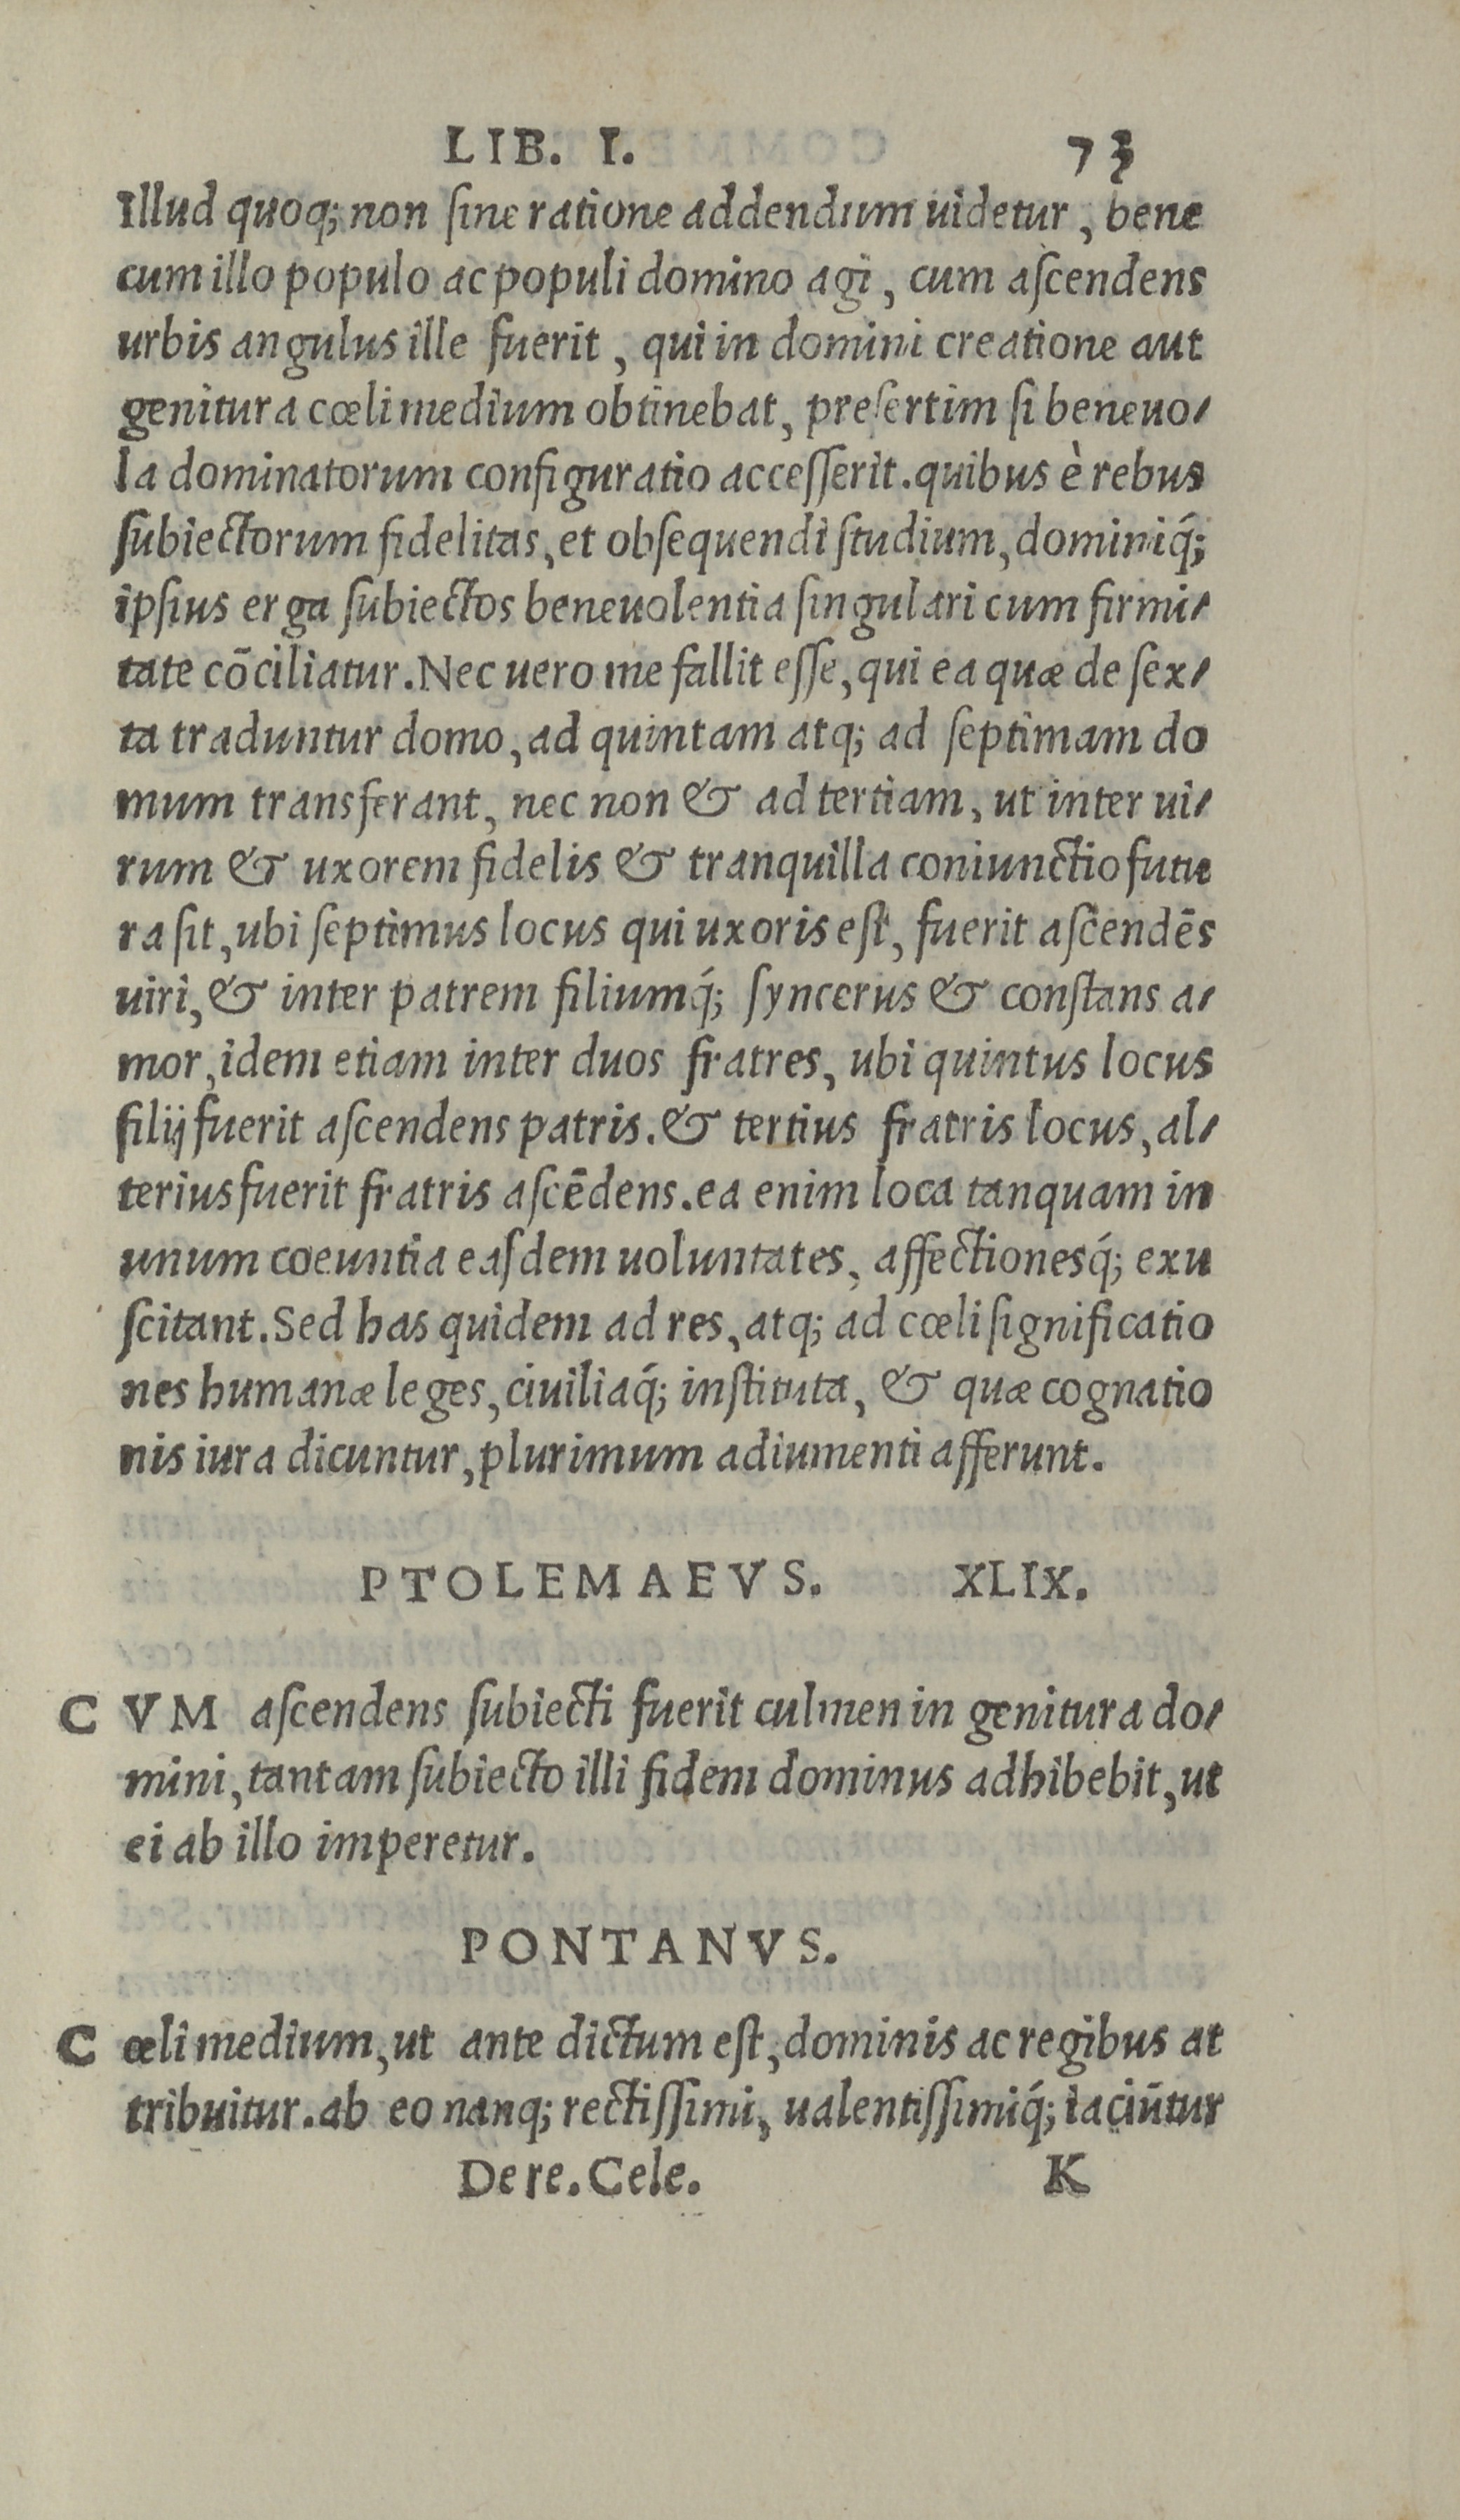 LIB. I. 73
Illud quoq; non ſine ratione addendum uidetur, bene
cum illo populo ac populi domino agi, cum aſcendens
urbis angulus ille fuerit, qui in domini creatione aut
genitura cœli medium obtinebat, preſertim ſi beneuo-
la dominatorum configuratio acceſſerit. quibus è rebus
ſubiectorum fidelitas, et obſequendi ſtudium, dominiq́;
ipſius erga ſubiectos beneuolentia ſingulari cum firmi-
tate cōciliatur. Nec uero me fallit eſſe, qui ea quæ de ſex-
ta traduntur domo, ad quintam atq; ad ſeptimam do
mum transferant, nec non & ad tertiam, ut inter ui-
rum & uxorem fidelis & tranquilla coniunctio futu
ra ſit, ubi ſeptimus locus qui uxoris eſt, fuerit aſcendēs
uiri, & inter patrem filiumq́; ſyncerus & conſtans a-
mor, idem etiam inter duos fratres, ubi quintus locus
filij fuerit aſcendens patris. & tertius fratris locus, al-
terius fuerit fratris aſcēdens. ea enim loca tanquam in
unum coeuntia eaſdem uoluntates, affectionesq́; exu
ſcitant. Sed has quidem ad res, atq; ad cœli ſignificatio
nes humanæ leges, ciuiliaq́; inſtituta, & quæ cognatio
nis iura dicuntur, plurimum adiumenti afferunt.
PTOLEMAEVS. XLIX.
CVM aſcendens ſubiecti fuerit culmen in genitura do-
mini, tantam ſubiecto illi fidem dominus adhibebit, ut
ei ab illo imperetur.
PONTANVS.
Cœli medium, ut ante dictum eſt, dominis ac regibus at
tribuitur. ab eo nanq; rectiſſimi, ualentiſſimiq́; iaciūtur
De re. Cele. K